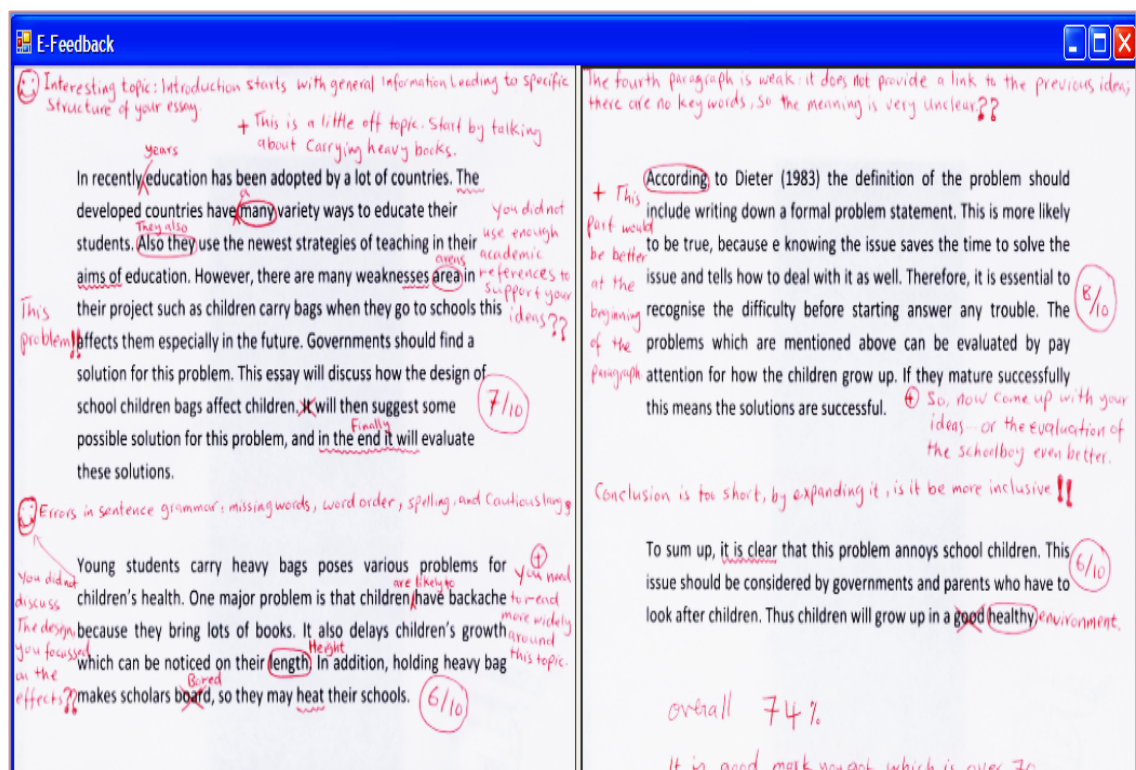 E-Feedback
Interesting topic: Introduction starts with general information Leading to specific
structure of your essay.
+ This is a little off topic. Start by talking
about Carrying heavy books.
years
In recently education has been adopted by a lot of countries. The
a
developed countries have many variety ways to educate their
They also
students. Also they use the newest strategies of teaching in their
areas
aims of education. However, there are many weaknesses area in
their project such as children carry bags when they go to schools this
affects them especially in the future. Governments should find a
solution for this problem. This essay will discuss how the design of
school children bags affect children. It will then suggest some
Finally
possible solution for this problem, and in the end it will evaluate
these solutions.
You did not
use enough
academic
references to
support your
ideas??
This
problem!!
7/10
Errors in sentence grammar: missing words, word order, spelling, and Cautious lang
Young students carry heavy bags poses various problems for
are likely to
children's health. One major problem is that children have backache
because they bring lots of books. It also delays children's growth
Height
which can be noticed on their length. In addition, holding heavy bag
Bored
makes scholars board, so they may heat their schools.
6/10
You did not
discuss
The design,
you focussed
on the
effects??
+
You need
to read
more widely
around
this topic.
The fourth paragraph is weak: it does not provide a link to the previous idea;
there are no key words, so the meaning is very unclear??
According to Dieter (1983) the definition of the problem should
include writing down a formal problem statement. This is more likely
to be true, because e knowing the issue saves the time to solve the
issue and tells how to deal with it as well. Therefore, it is essential to
recognise the difficulty before starting answer any trouble. The
problems which are mentioned above can be evaluated by pay
attention for how the children grow up. If they mature successfully
this means the solutions are successful.
+ This
part would
be better
at the
beginning
of the
paragraph
8/10
+ So, now come up with your
ideas... or the evaluation of
the schoolboy even better.
Conclusion is too short, by expanding it, is it be more inclusive!!
To sum up, it is clear that this problem annoys school children. This
issue should be considered by governments and parents who have to
look after children. Thus children will grow up in a good healthy environment.
6/10
overall 74%
It is good mark you got which is over 70